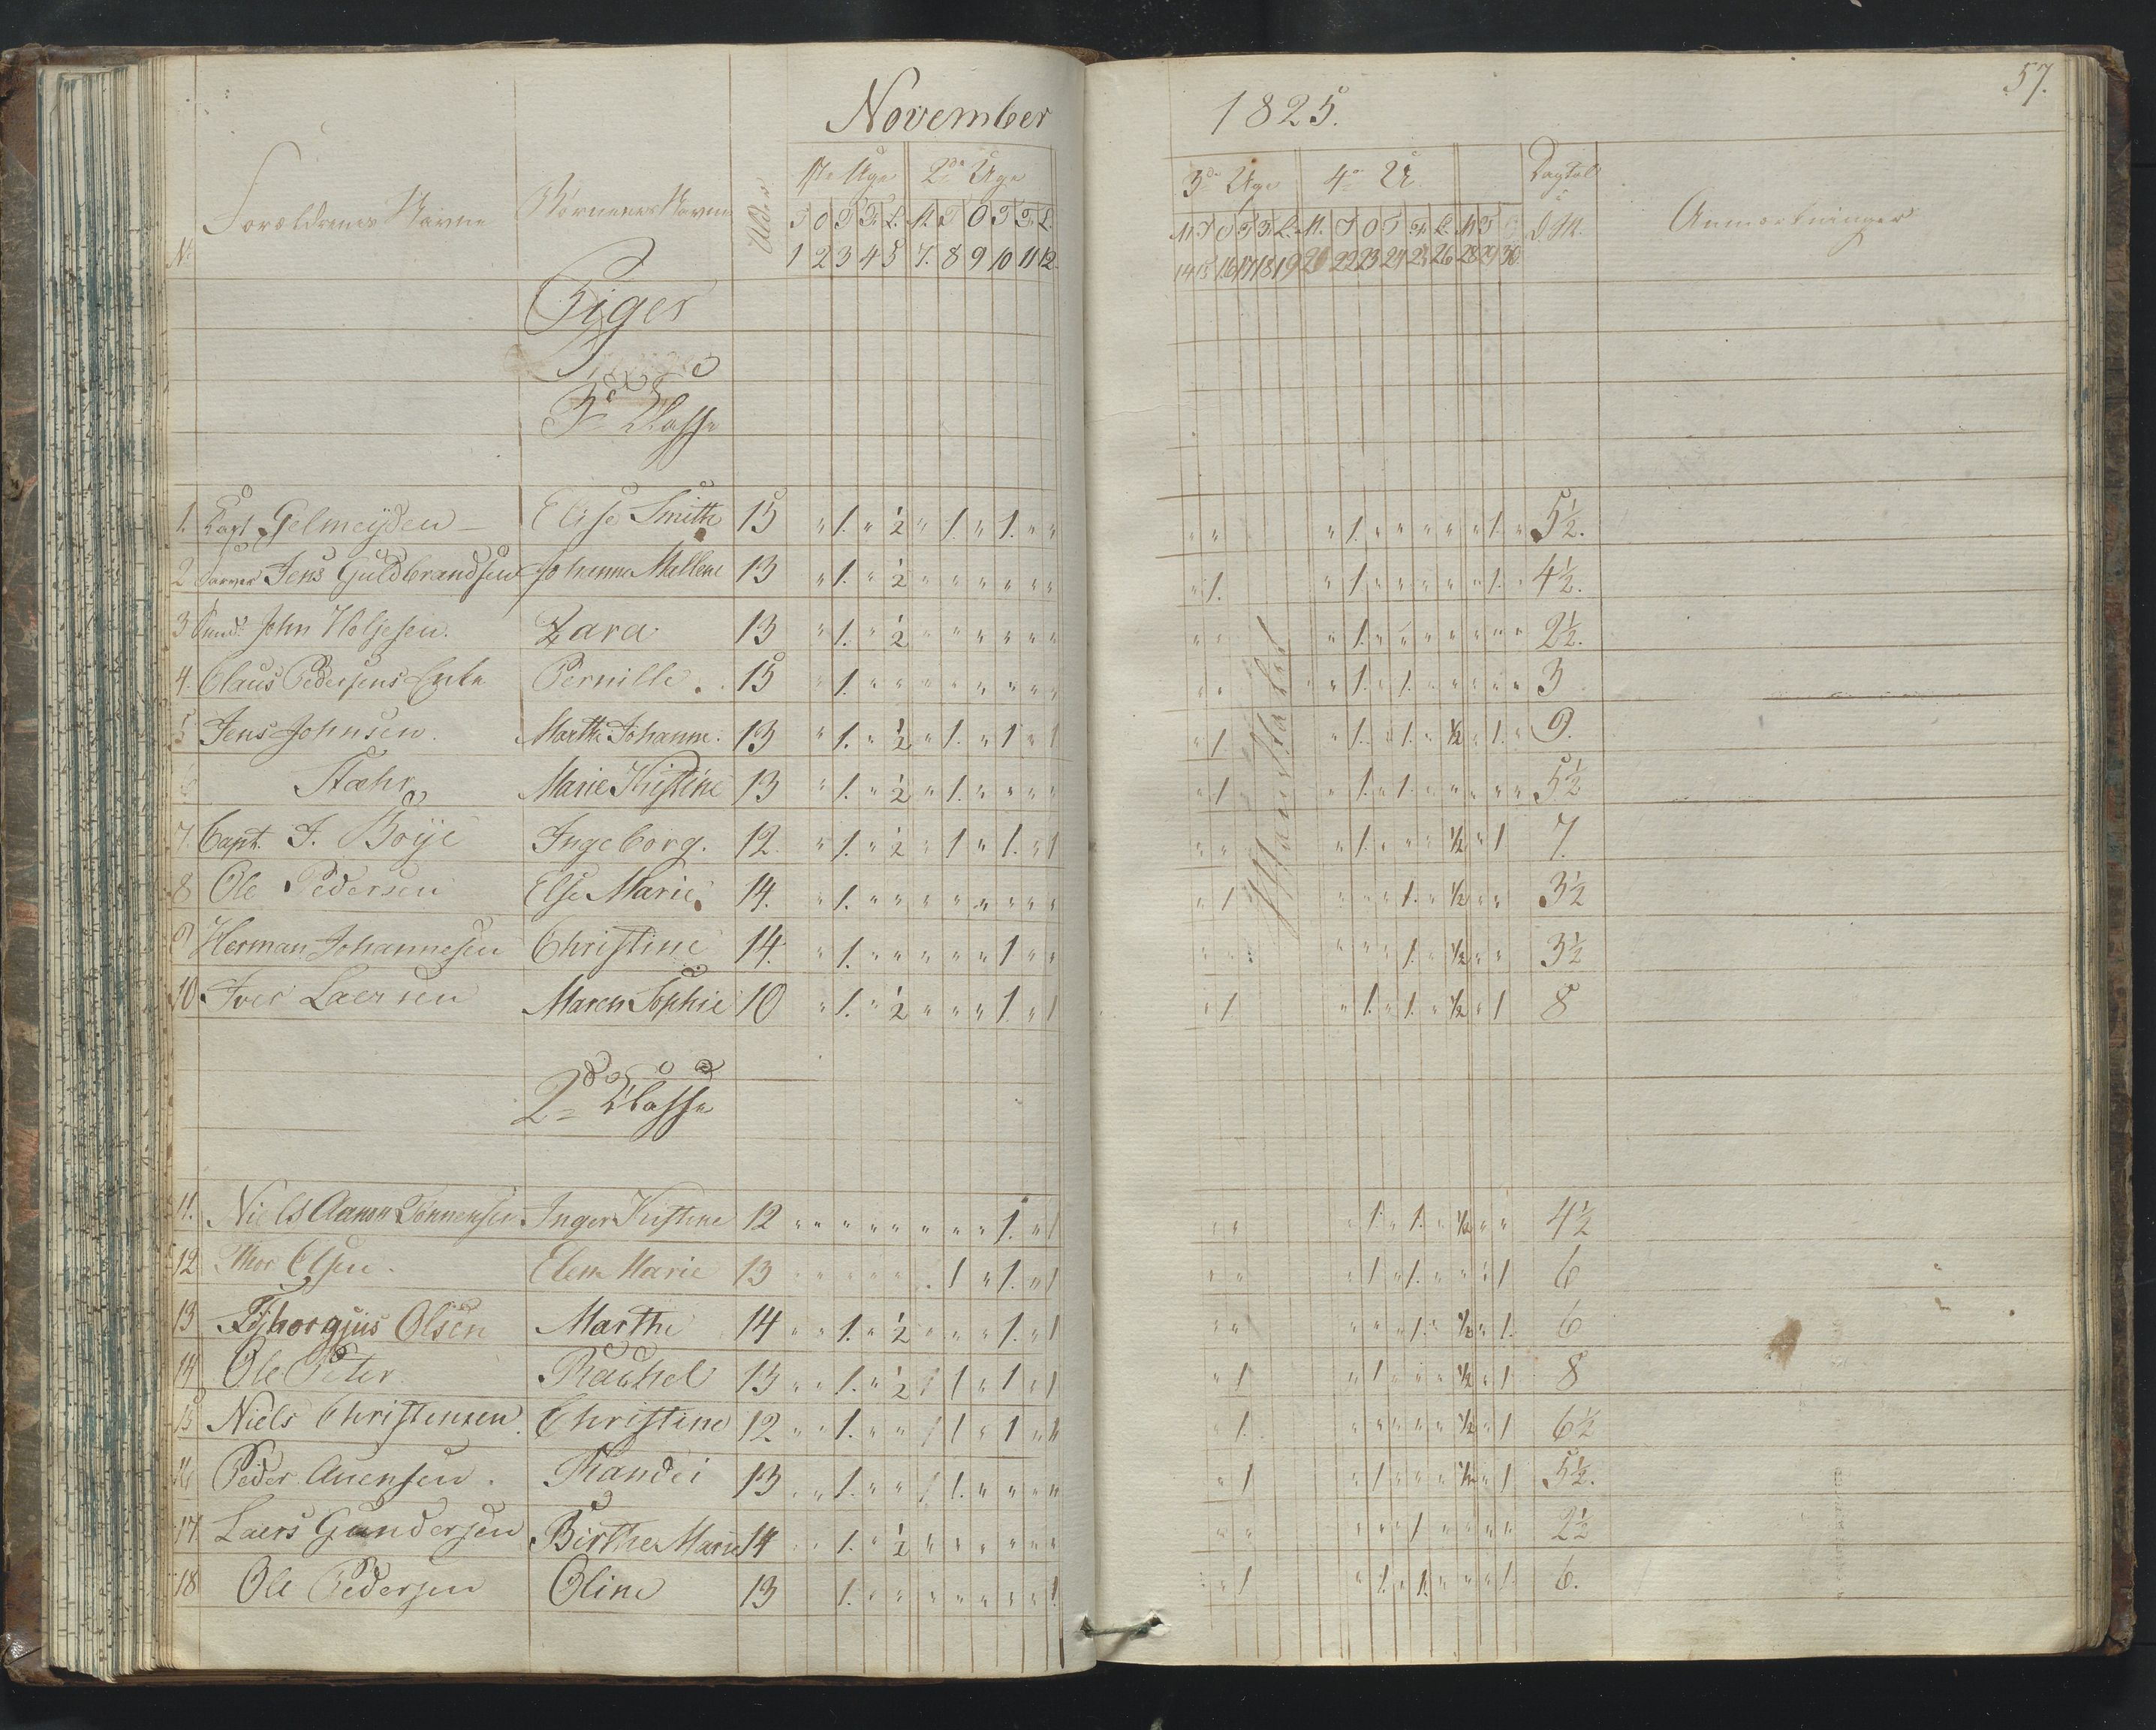 57.
November 1825.
N. Forældrenes Navne Børnenes Navne Alder 1ste Uge 2de Uge 3de Uge 4de U Dagtal Anmærkninger
T O T F. L. M T O T F. L. M T O T F. L. M. T O T F. L. M T O S. M.
1 2 3 4 5 7. 8 9 10 11 12. 14 15 16 17 18 19 20 22 23 24 25 26 28 29 30
Piger
3de Klasse
1. Kapt Gelmeyden — Elise Smith 15 " 1. " ½ " 1. " 1. " " " " " 1. " " " " " 1. " 5½.
2 Jens Guldbrandsen Johanne Mallene 13 " 1. " ½ " " " " " " " 1. " 1. " " " " " 1. " 4½.
3 John Holjesen. Zara 13 " 1. " ½ " " " " " " " " " 1. " " " " " " " 2½.
4. Claus Pedersens Enke Pernille. 15 " 1. " " " " " " " " " " " 1. " 1. " " " " " 3
5 Jens Johnsen. Marthe Johanne. 13 " 1. " ½ " 1. " 1 " 1 " 1. " 1. " 1. " ½ " 1. " 9.
6 Stæhr Marie Kristine 13 " 1. " ½ " 1. " " " " " 1 " 1. " 1. " " " " " 5½
7. Capt. J. Boye Ingeborg. 12. " 1. " ½ " 1 " 1. " 1 " " " 1. " " " ½ " 1 7.
8 Ole Pedersen Else Marie. 14. " 1. " " " " " " " " " 1 " " " 1. " ½ " " 3½
9 Herman Johannesen Christine 14. " 1. " " " " " 1 " " " " " " " 1. " ½ " " 3½
10 Iver Laersen Maren Sophie 10 " 1. " ½ " " " 1. " 1 " 1. " 1. " 1. " ½ " 1 8
2de Klasse
11. Niels Aanon Tønnensen Inger Kistine 12 " " " " " " " " 1. " 1 " " " 1. " 1. " ½ " " 4½
12 Thor Olsen. Elen Marie 13 " " " " " . 1 " 1. " 1 " " " 1 " 1. " " " 1 6
13 Olsen Marthe 14 " " 1. " ½ " " " 1. " 1 " " " " " 1. " ½ " 1. 6
14 Ole Peter. Rachel 13 " " 1. " ½ / 1 " 1 " 1 " 1 " 1 " " " ½ " 1 8
15 Niels Christensen. Christine 12 " " 1. " " / 1 " 1 " " " 1. " " " " " ½ " 1 6½
16 Peder Auensen. Randei 13 " " 1. " " / 1. " " " " " 1 " 1 " " " ½ " 1 5½.
17 Laers Gundersen Birthe Marie 14 " " 1. " ½ " " " " " " " " " " " 1 " " " " 2½
18 Ole Pedersen Oline 13 1. " " " " " " " 1. " 1 " 1. " 1. " " " 1. 6.